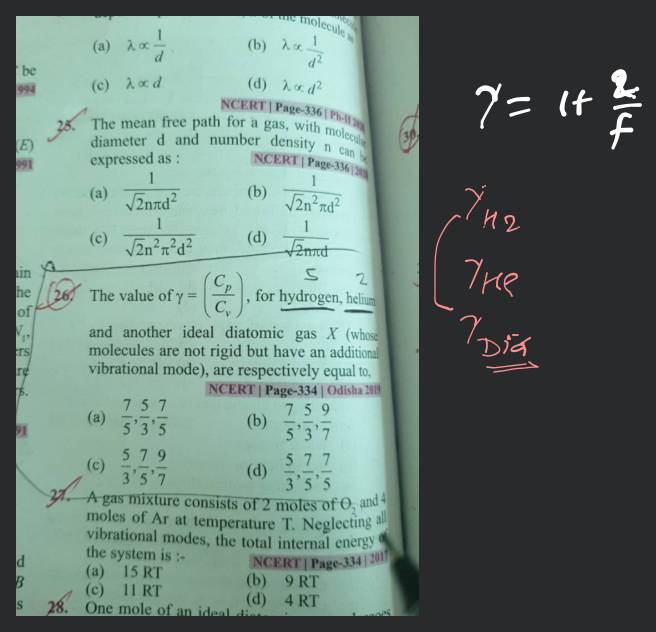 the molecule
(a) λ ∝ 1/d (b) λ ∝ 1/d²
be
(c) λ ∝ d (d) λ ∝ d²
994
NCERT | Page-336 | Ph-II
25. The mean free path for a gas, with molecular
(E) diameter d and number density n can be
991 expressed as : NCERT | Page-336
30
(a) 1/√2nπd² (b) 1/√2n²πd²
(c) 1/√2n²π²d² (d) 1/√2nπd
ain
he
of
5 2
26. The value of γ = (Cp/Cv), for hydrogen, helium
and another ideal diatomic gas X (whose
ers molecules are not rigid but have an additional
re vibrational mode), are respectively equal to,
s.
NCERT | Page-334 | Odisha 2019
91
(a) 7/5, 5/3, 7/5 (b) 7/5, 5/3, 9/7
(c) 5/3, 7/5, 9/7 (d) 5/3, 7/5, 7/5
27. A gas mixture consists of 2 moles of O₂ and 4
moles of Ar at temperature T. Neglecting all
vibrational modes, the total internal energy
d the system is :- NCERT | Page-334 | 2017
B (a) 15 RT (b) 9 RT
(c) 11 RT (d) 4 RT
s 28. One mole of an ideal
γ = 1+ 2/f
γH2
γHe
γDia